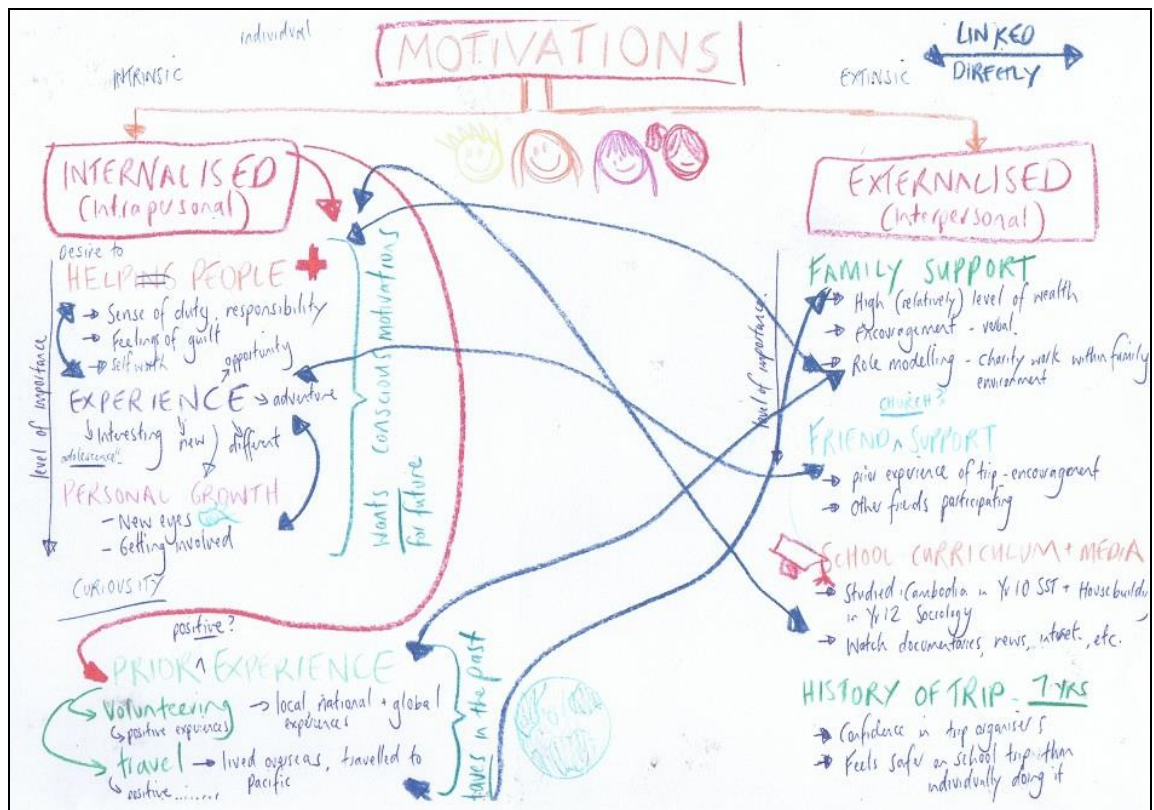 individual
MOTIVATIONS
LINKED
DIRECTLY
INTRINSIC
EXTINSIC
INTERNALISED
(Intrapersonal)
EXTERNALISED
(Interpersonal)
Desire to
HELPING PEOPLE
→ Sense of duty, responsibility
→ Feelings of guilt
→ Self worth
opportunity
EXPERIENCE → adventure
Interesting
new
different
PERSONAL GROWTH
- New eyes
- Getting involved
level of importance
CURIOUSITY
Wants conscious motivations
for future
positive?
PRIOR ^ EXPERIENCE
volunteering → local, national + global
experiences
positive experiences
travel → lived overseas, travelled to
Pacific
positive........
in the past
level of importance
FAMILY SUPPORT
→ High (relatively) level of wealth
→ Encouragement - verbal
→ Role modelling - charity work within family
environment
CHURCH?
FRIEND ^ SUPPORT
→ prior experience of trip - encouragement
→ Other friends participating
SCHOOL CURRICULUM + MEDIA
→ Studied Cambodia in Yr 10 SST + Housebuildg
in Yr 12 Sociology
→ Watch documentaries, news, internet, etc.
HISTORY OF TRIP - 7 YRS
→ Confidence in trip organisers
→ Feels safer on school trip than
individually doing it